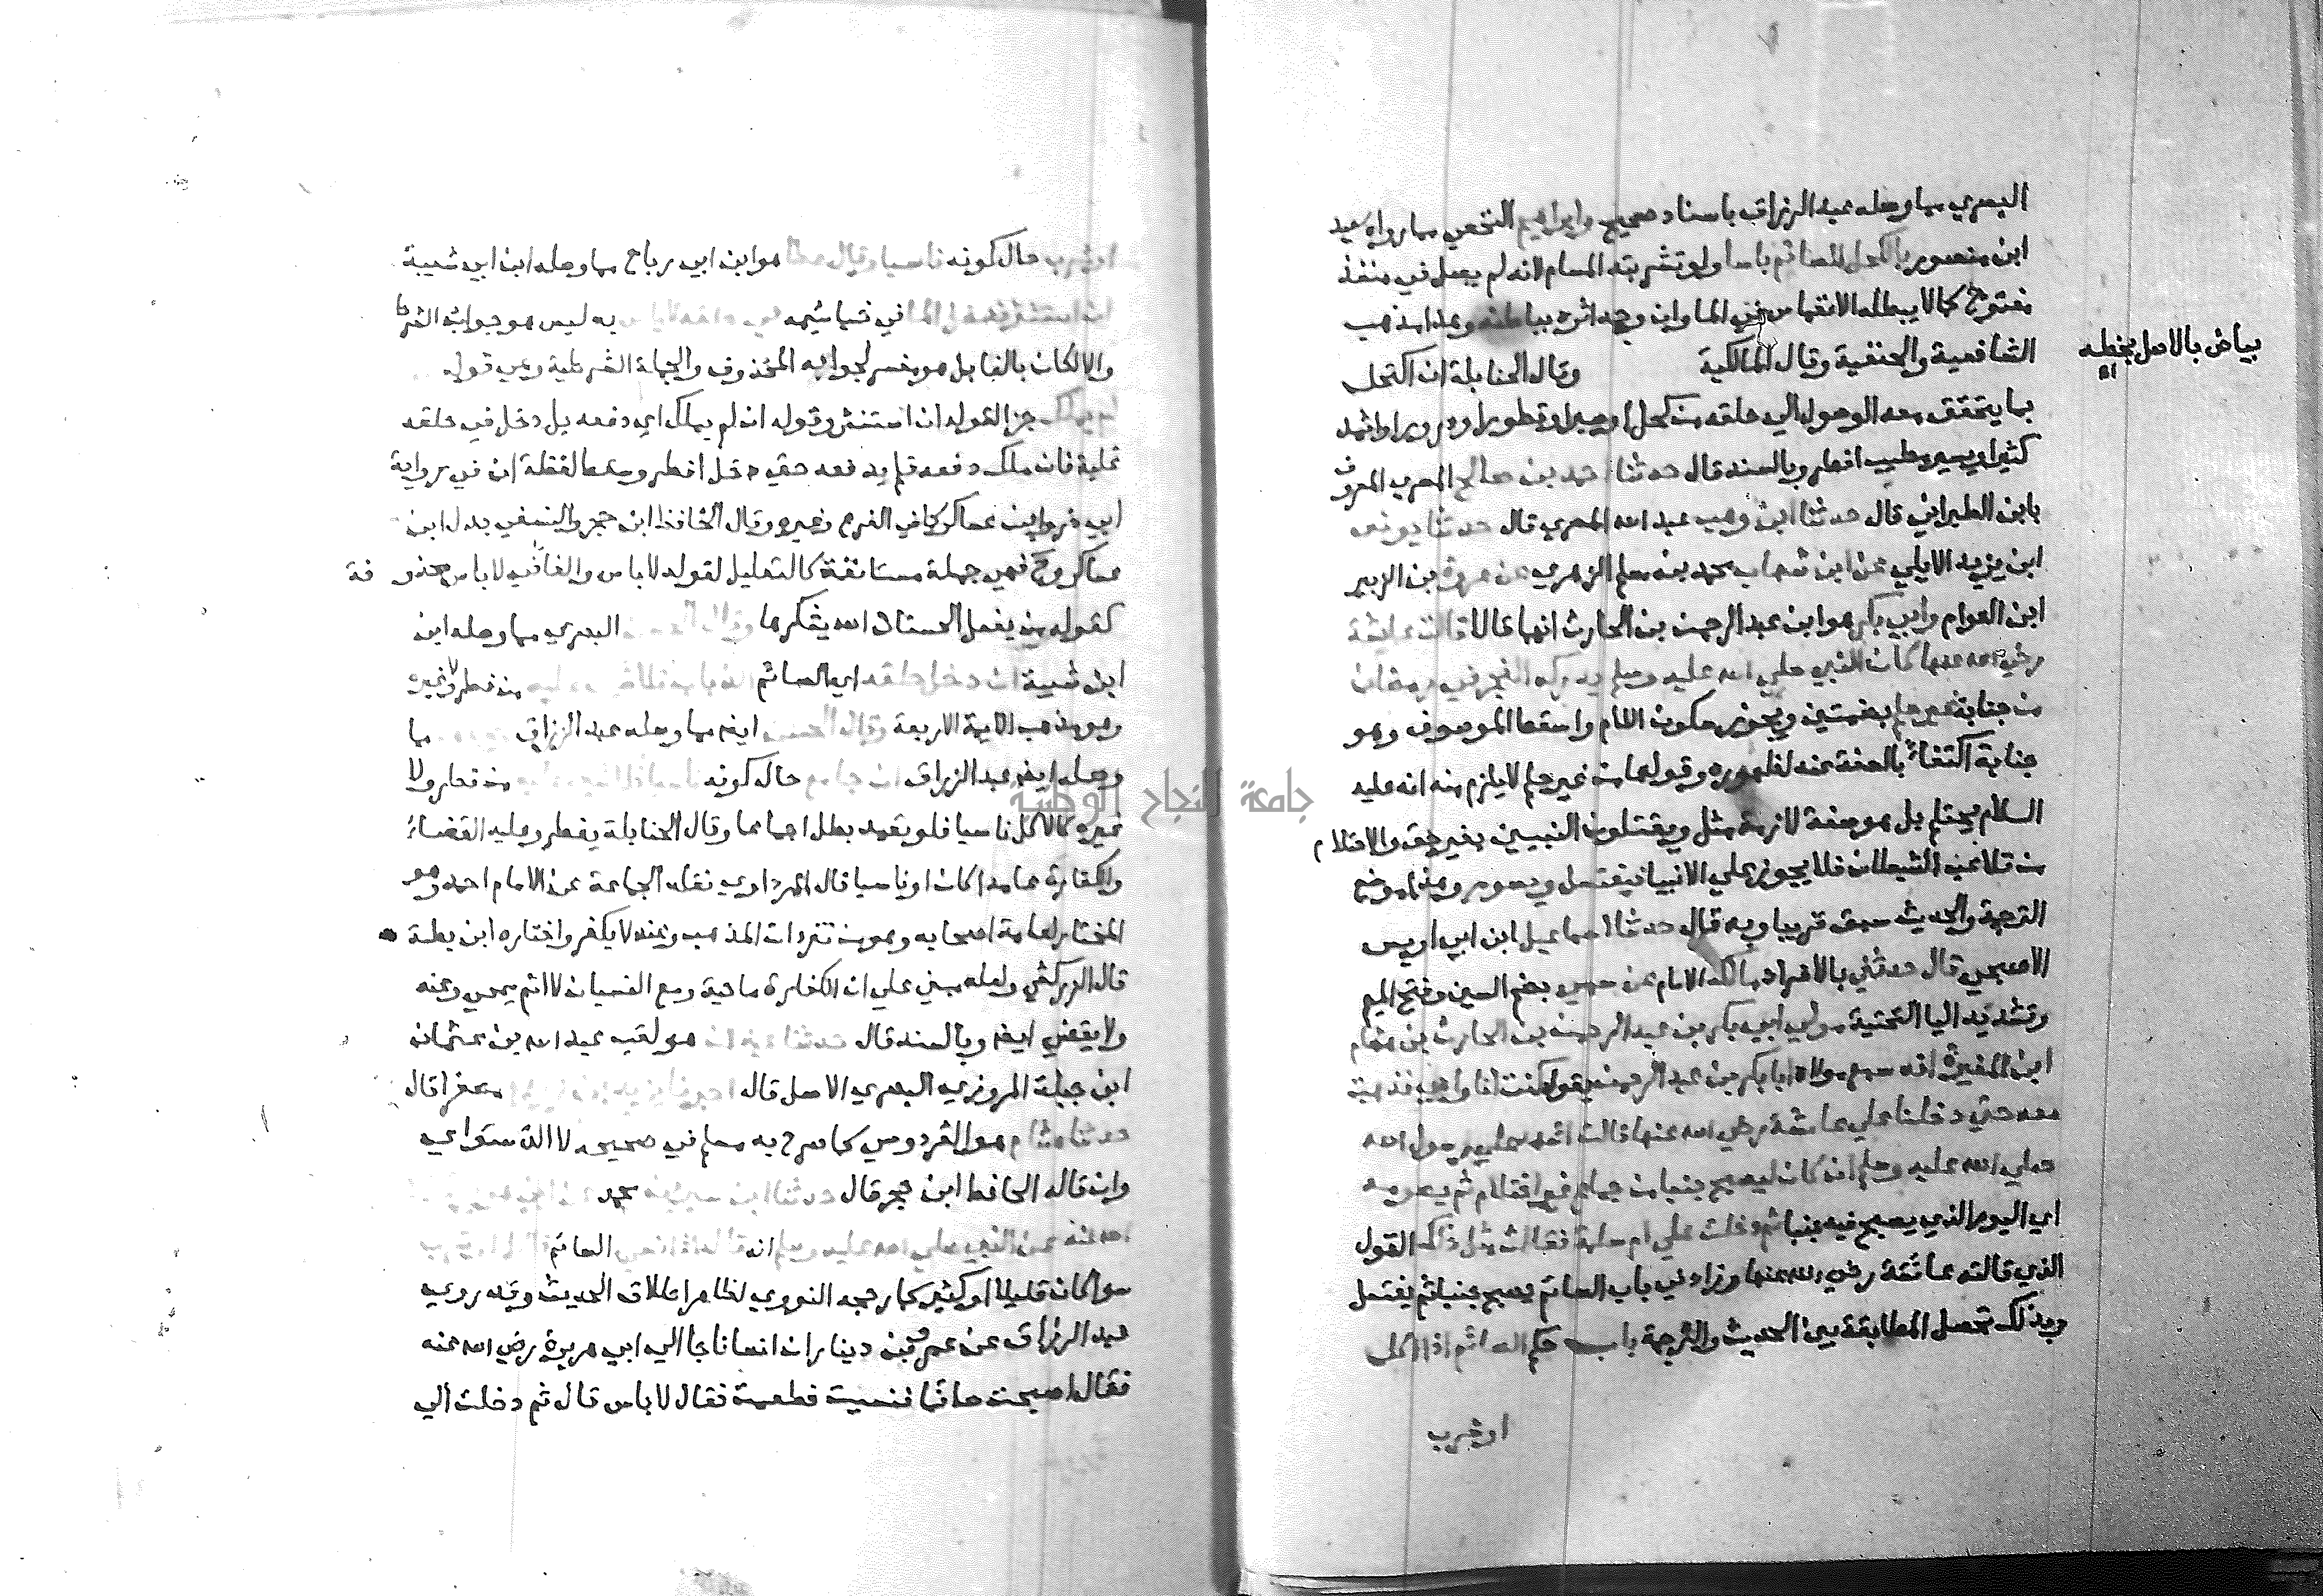 البصري مما وصله عبد الرزاق باسناد صحيح وابراهيم النخعي مما رواه سعيد
ابن منصور بالكحل للصائم باسا ولو تشربته المسام لانه لم يصل في منفذ
مفتوح كما لا يبطله الانغماس في الما وان وجد اثره بباطنه وهذا مذهب
الشافعية والحنفية وقال المالكية وقال الحنابلة ان اكتحل
بياض بالاصل بخطه اه
بما يتحقق معه الوصول الي حلقه من كحل او صبر او قطور او ذرور او اثمد
كثير او يسير مطيب افطر وبالسند قال حدثنا احمد بن صالح المصري المعروف
بابن الطبراني قال حدثنا ابن وهب عبد الله المصري قال حدثنا يونس
ابن يزيد الايلي عن ابن شهاب محمد بن مسلم الزهري عن عروة بن الزبير
ابن العوام وابي بكر هو ابن عبد الرحمن بن الحارث انهما قالا قالت عايشة
رضي الله عنها كان النبي صلي الله عليه وسلم يدركه الفجر في رمضان
من جنابة غير حلم بضمتين ويجوز سكون اللام واسقط الموصوف وهو
جنابة اكتفاء بالصفة عنه لظهوره وقولها من غير حلم لا يلزم منه انه عليه
السلام يحتلم بل هو صفة لازمة مثل ويقتلون النبيين بغير حق والاحتلام
من تلاعب الشيطان فلا يجوز علي الانبيا فيغتسل ويصوم وهذا موضع
الترجمة والحديث سبق قريبا وبه قال حدثنا اسماعيل ابن ابي اويس
الاصبحي قال حدثني بالافراد مالك الامام عن سمي بضم السين وفتح الميم
وتشديد اليا التحتية مولي ابي بكر بن عبد الرحمن بن الحارث بن هشام
ابن المغيرة انه سمع مولاه ابا بكر بن عبد الرحمن يقول كنت انا وابي فذهبت
معه حتي دخلنا علي عائشة رضي الله عنها قالت اشهد علي رسول الله
صلي الله عليه وسلم ان كان ليصبح جنبا من جماع غير احتلام ثم يصومه
اي اليوم الذي يصبح فيه جنبا ثم دخلت علي ام سلمة فقالت مثل ذلك القول
الذي قالته عائشة رضي الله عنها وزاد في باب الصائم يصبح جنبا ثم يغتسل
وبذلك تحصل المطابقة بين الحديث والترجمة باب حكم الصائم اذا اكل
او شرب
او شرب حال كونه ناسيا وقال عطا هو ابن ابي رباح مما وصله ابن ابي شيبة
ان استنثر فدخل الما في خياشيمه به ليس هو جواب الشرط
والا لكان بالفا بل هو مفسر لجوابه المحذوف والجملة الشرطية وهي قوله
لم يملك جزا لقوله ان استنثر وقوله ان لم يملك اي دفعه بل دخل في حلقه
غلبة فان ملك دفعه فلم يدفعه حتي دخل افطر وسقط لفظة ان في رواية
ابي ذر وابن عساكر كما في الفرع وغيره وقال الحافظ ابن حجر والنسفي بدل ابن
عساكر وح فهي جملة مستانفة كالتعليل لقوله لا باس والفا في لا باس محذوفة
كقوله من يفعل الحسنات الله يشكرها وقال الحسن البصري مما وصله ابن
ابن شيبة ان دخل حلقه اي الصائم الذباب فلا شي عليه من فطر ولا غيره
وهو مذهب الايمة الاربعة وقال الحسن ايضا مما وصله عبد الرزاق مما
وصله ايضا عبد الرزاق ان جامع حال كونه ناسيا فلا شي عليه من فطر ولا
غيره كالاكل ناسيا فلو تعمد بطل اجماعا وقال الحنابلة يفطر وعليه القضاء
والكفارة عامدا كان او ناسيا قال المرداوي نقله الجماعة عن الامام احمد وهو
المختار لعامة اصحابه وهو من تفردات المذهب وعنه لا يكفر واختاره ابن بطة
قال الزركشي ولعله مبني علي ان الكفارة ماحية ومع النسيان لا اثم يمحي وعنه
ولا يقضي ايضا وبالسند قال حدثنا عبدان هو لقب عبد الله بن عثمان
ابن جبلة المروزي البصري الاصل قال اخبرنا مصغرا قال
حدثنا هشام هو القردوسي كما صرح به مسلم في صحيحه لا الدستواي
وان قاله الحافظ ابن حجر قال حدثنا ابن سيرين محمد
الله عنه عن النبي صلي الله عليه وسلم انه قال اذا نسي الصائم
سوا كان قليلا او كثير كما رجحه النووي لظاهر اطلاق الحديث وقد روي
عبد الرزاق عن عمرو بن دينار ان انسانا جا الي ابي هريرة رضي الله عنه
فقال اصبحت صائما فنسيت فطعمت فقال لا باس قال ثم دخلت الي
جامعة النجاح الوطنية